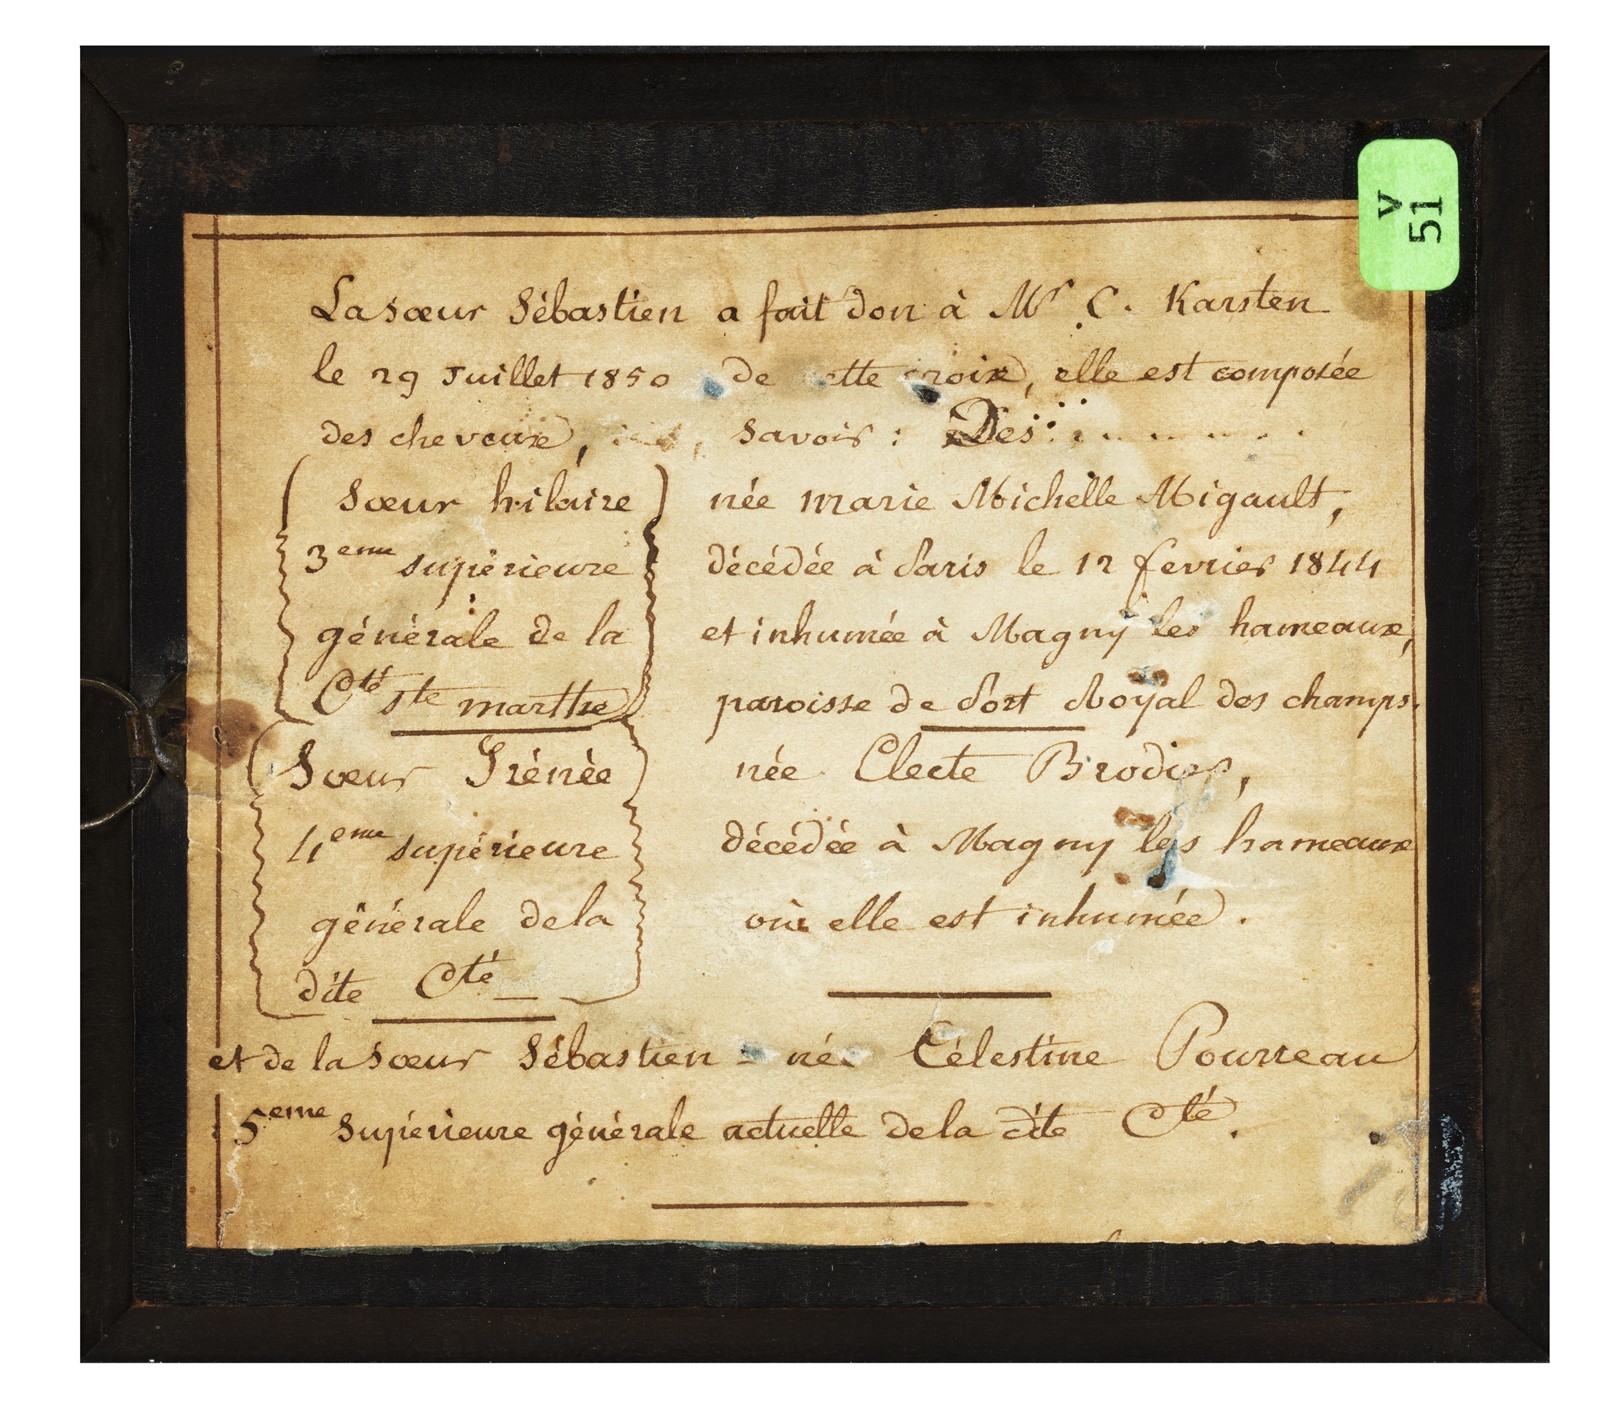 V
51
La sœur Sébastien a fait don à Mr C. Karsten
le 29 Juillet 1850 de cette croix, elle est composée
des cheveux, savoir : Des
Sœur hilaire née marie Michelle Migault,
3eme supérieure décédée à Paris le 12 fevrier 1844
générale de la et inhumée à Magny les hameaux,
Cté ste marthe paroisse de Port Royal des champs.
Sœur Irénée née Electe Brodier,
4eme supérieure décédée à Magny les hameaux
générale de la où elle est inhumée.
dite Cté
et de la sœur Sébastien = née Célestine Pourreau
5eme supérieure générale actuelle de la dite Cté.